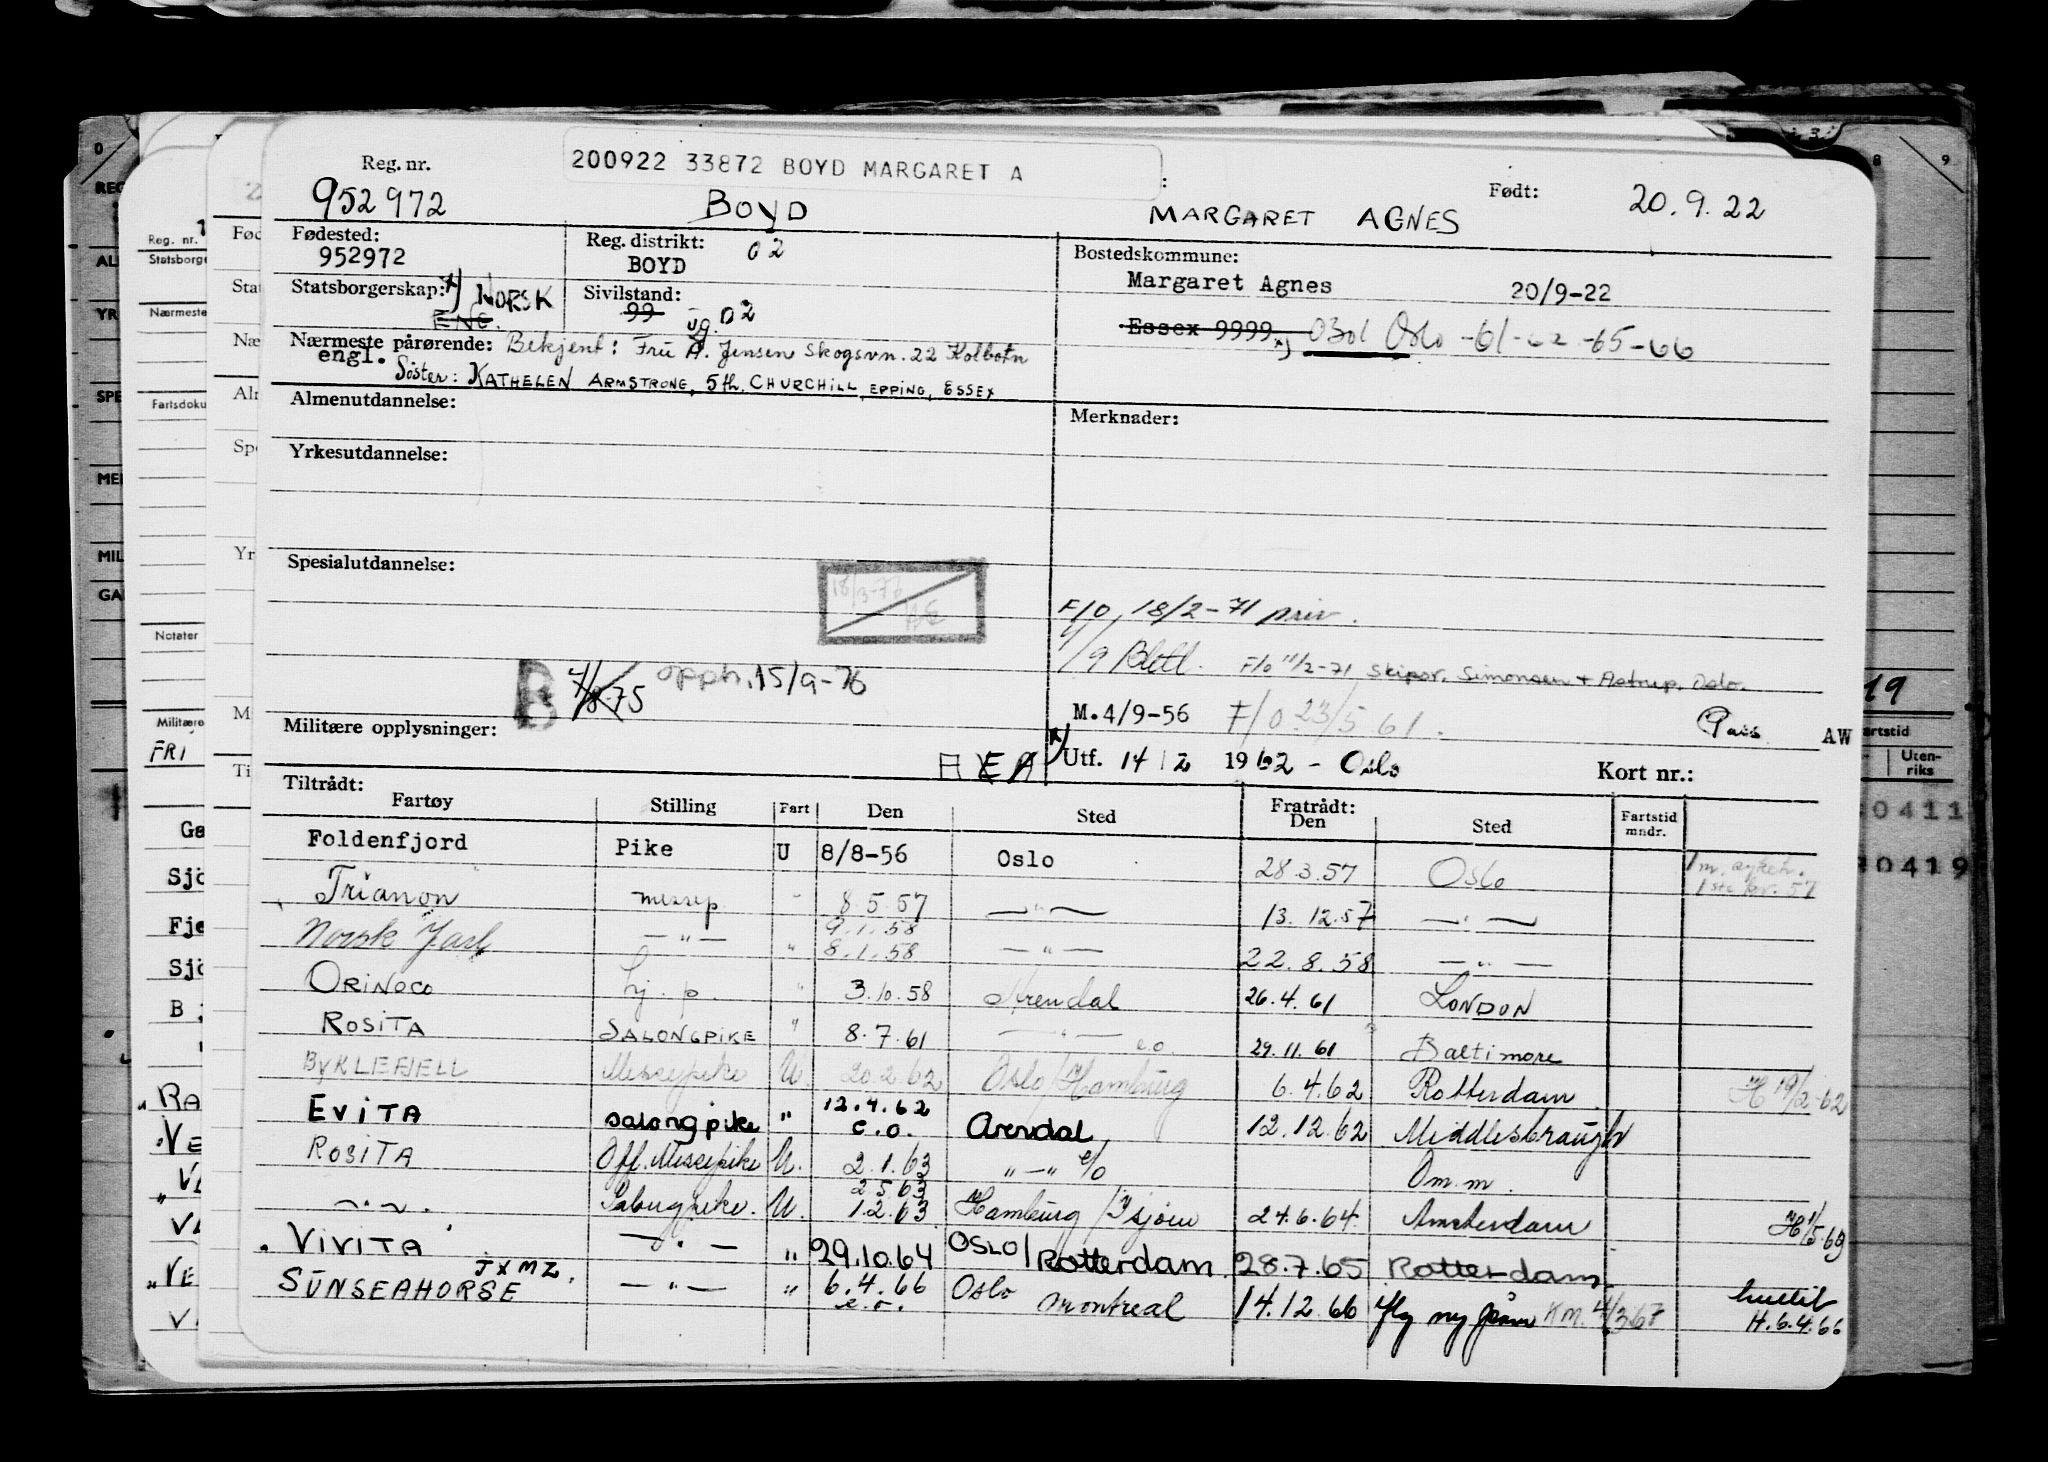 Reg. nr. 200922 33872 BOYD MARGARET A Født:
952972 BOYD MARGARET AGNES 20.9.22
Fødested: Reg. distrikt: 02 Bostedskommune:
952972 BOYD Margaret Agnes 20/9-22
Statsborgerskap: x) NORSK Sivilstand:
ENG. 99 ug. 02 Essex 9999 x) 0301 Oslo -61-62-65-66
Nærmeste pårørende: Bekjent: Fru A. Jensen Skogsvn. 22 Kolbotn
engl. Söster: KATHELEN ARMSTRONG, 5th. CHURCHILL, EPPING, ESSEX
Almenutdannelse: Merknader:
Yrkesutdannelse:
Spesialutdannelse:
18/3-77
F/O, 18/2-71 priv.
1/9 Bletl. F/o 11/2-71 Skipsr. Simonsen + Astrup. Oslo.
B 4/8.75 opph. 15/9-76
M.4/9-56 F/O. 23/5 61. Pass AW
Militære opplysninger:
x) Utf. 14/2 1962 - Oslo Kort nr.:
Tiltrådt: Fratrådt: Fartstid mndr.
Fartøy Stilling Fart Den Sted Den Sted
Foldenfjord Pike U 8/8-56 Oslo 28.3.57 Oslo
Trianon messp. - 8.5.57 —"— 13.12.57 —"—
9.1.58
Norsk Jarl —"— " 8.1.58 —"— 22.8.58 —"—
ORINOCO hj. p. " 3.10.58 Arendal 26.4.61 LONDON
ROSITA SALONGPIKE " 8.7.61 —"— e.o. 29.11.61 Baltimore
BYKLEFJELL Messepike U. 20.2.62 Oslo/Hamburg 6.4.62 Rotterdam H 19/2-62
EVITA salongpike " 12.4.62 e.o. Arendal 12.12.62 Middlesbraugh
ROSITA Off. Messepike U. 2.1.63 "—" e/o Om.m.
2.5.63
—"—. Salongpike. U. 1.2.63 Hamburg 24.6.64. Amsterdam
VIVITA —"— " 29.10.64 OSLO/Rotterdam 28.7.65 Rotterdam
JXMZ.
SUNSEAHORSE —"— " 6.4.66 e.o. Oslo Montreal 14.12.66 KM. 4/3 67 H.6.4.66
0 3 8 9
REG
AL
YR
SPE
ME
MIL
GA
Reg. nr.
Statsborge
Nærmeste
Fartsdoku
Notater
Militære
FRI
Fød
Stat
Næ
Alm
Spe
Yr
M
Ti
Ga
Sjö
Fje
Sjö
B
RA
VE
VE
19
artstid
Uten-
riks
0411
0419